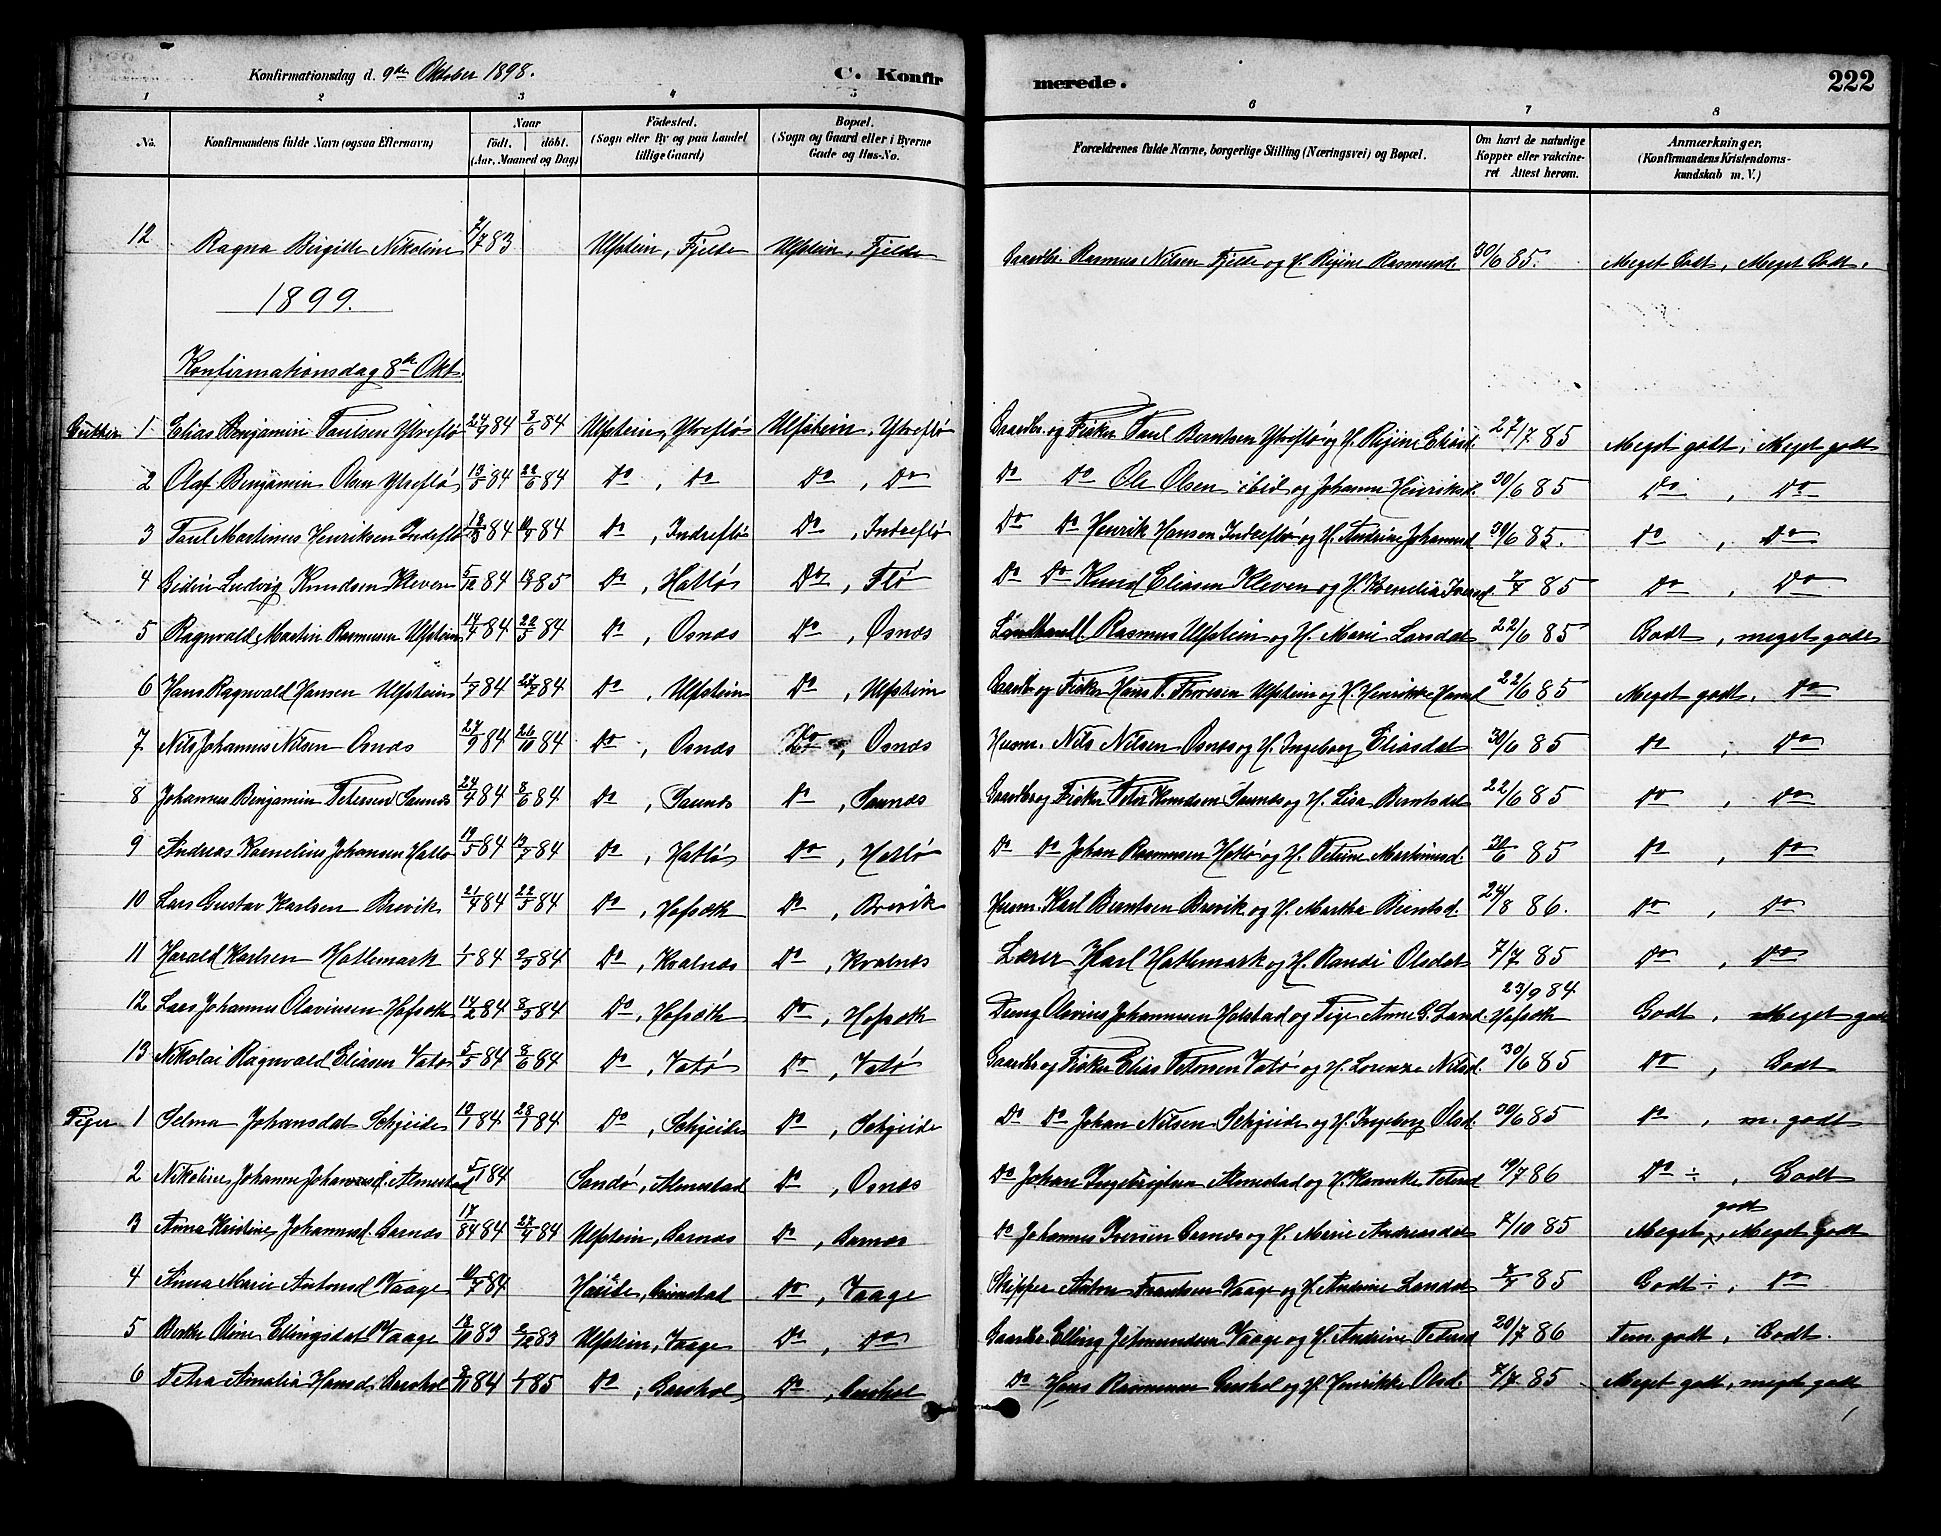 Konfirmationsdag d. 9de Oktober 1898. C. Konfirmerede. 222
1 2 3 4 5 6 7 8
No. Konfirmandens fulde Navn (ogsaa Efternavn) Naar födt. döbt. (Aar, Maaned og Dag) Födested. (Sogn eller By og paa Landet tillige Gaard) Bopæl. (Sogn og Gaard eller i Byerne Gade og Hus-No. Forældrenes fulde Navne, borgerlige Stilling (Næringsvei) og Bopæl. Om havt de naturlige Kopper eller vakcineret Attest herom. Anmærkninger. (Konfirmandens Kristendomskundskab m. V.)
12 Ragna Birgitte Nikoline 2/7 83 Ulfstein, Fjelde Ulfstein, Fjelde Gaardbr. Rasmus Nilsen Fjelde og H. Rijine Rasmusd. 30/6 85. Meget Godt, Meget Godt.
1899.
Konfirmationsdag 8de Okt.
Gutter 1 Elias Benjamin Paulsen Ytreflø 24/4 84 8/6 84 Ulfstein, Ytreflø Ulfstein, Ytreflø Gaardbr. og Fisker Paul Berntsen Ytreflø og H. Rijine 27/7 85 Meget godt, Meget godt
2 Olaf Benjamin Olsen Ytreflø 13/5 84 22/6 84 Do, Do Do, Do Do Do Ole Olsen ibid og Johanne Henriksd. 30/6 85 Do, Do
3 Paul Martinus Henriksen Indreflø 84 84 Do, Indreflø Do, Indreflø Do Do Henrik Hansen Indreflø og H. Andrine Johannsd 30/6 85. Do, Do
4 Ludvig Knudsen Kleven 5/12 84 85 Do, Hatlø Do, Flø Do Do Knud Eliasen Kleven og H. Kornelia Iversd 7/7 85 Do, Do
5 Ragnvald Martin Rasmusen Ulfstein 14/4 84 22/5 84 Do, Osnæs Do, Osnæs Landhandl. Rasmus Ulfstein og H. Marie Larsdat 22/6 85 Godt, meget godt
6 Hans Ragnvald Hansen Ulfstein 1/7 84 27/7 84 Do, Ulfstein Do, Ulfstein Gaardb og Fisker Hans P. Thoresen Ulfstein og H. Henrikke Hansd 22/6 85 Meget godt, Do
7 Nils Johannes Nilsen Osnæs 27/9 84 26/10 84 Do, Osnæs Do, Osnæs Husm. Nils Nilsen Osnæs og H. Ingeborg Eliasdat 30/6 85 Do, Do
8 Johannes Benjamin Petersen Saunæs 27/4 84 8/6 84 Do, Saunæs Do, Saunæs Gaardbr og Fisker Peter Knudsen Saunæs og H. Lisa Berntsdat 22/6 85 Do, Do
9 Andreas Kornelius Johansen Hatlø 19/5 84 13/7 84 Do, Hatlø Do, Hatlø Do Do Johan Rasmusen Hatlø og H. Petrine Martinusd. 30/6 85 Do, Do
10 Lars Gustav Karlsen Brevik 21/4 84 22/5 84 Do, Hofsæth Do, Brevik Husm. Karl Berntsen Brevik og H. Martha Berntsd. 24/8 86. Do, Do
11 Harald Karlsen Hatlemark 1/1 84 2/3 84 Do, Kvalnæs Do, Kvalnæs Lærer Karl Hatlemark og H. Randi Olsdat 7/7 85 Do, Do
12 Lars Johannes Olavinsen Hofsæth 14/2 84 8/3 84 Do, Hofsæth Do, Hofsæth Ung Olavius Johannesen Holstad og Pige Anne G. Larsd. Hofsæth 23/9 84 Godt, Meget godt
13 Nikolai Ragnvald Eliasen Vatø 5/5 84 8/6 84 Do, Vatø Do, Vatø Gaardbr og Fisker Elias Petersen Vatø og H. Lorenze Nilsd. 30/6 85 Do, Godt
Piger 1 Selma Johansdat Schjeide 84 84 Do, Schjeide Do, Schjeide Do Do Johan Nilsen Schjeide og H. Ingeborg Olsd. 30/6 85 Do, m. godt
2 Nikoline Johanne Johansd. Almestad 84 Sandø, Almestad Do, Osnæs Do Johan Ingebrigtsen Almestad og H. Petersd 19/7 86 Do ÷, Godt
3 Anna Kristine Johannesd. Garnæs 84 27/4 84 Ulfstein, Garnæs Do, Garnæs Do Johannes Iversen Garnæs og H. Marie Andreasdat 7/10 85 Meget godt, Meget godt
4 Anna Marie Antonsd Vaage 84 Harøide, Grimstad Do, Vaage Skipper Anton Frantsen Vaage og H. Andrine Larsdat 7/7 85 Godt ÷, Do
5 Berthe Oline Ellingsdat Vaage 13/10 83 2/12 83 Ulfstein, Vaage Do, Do Gaardbr. Elling Jetmundsen Vaage og H. Andrine Petersd 20/7 86 Tem. godt, Godt.
6 Petra Amalia Hansd. Garshol 9/11 84 1/1 85 Do, Garshol Do, Garshol Do Hans Rasmusen Garshol og H. Henrikke Olsd. 7/7 85 Meget godt, meget godt